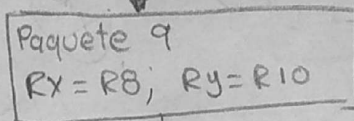 Paquete 9
RX = R8; Ry = R10